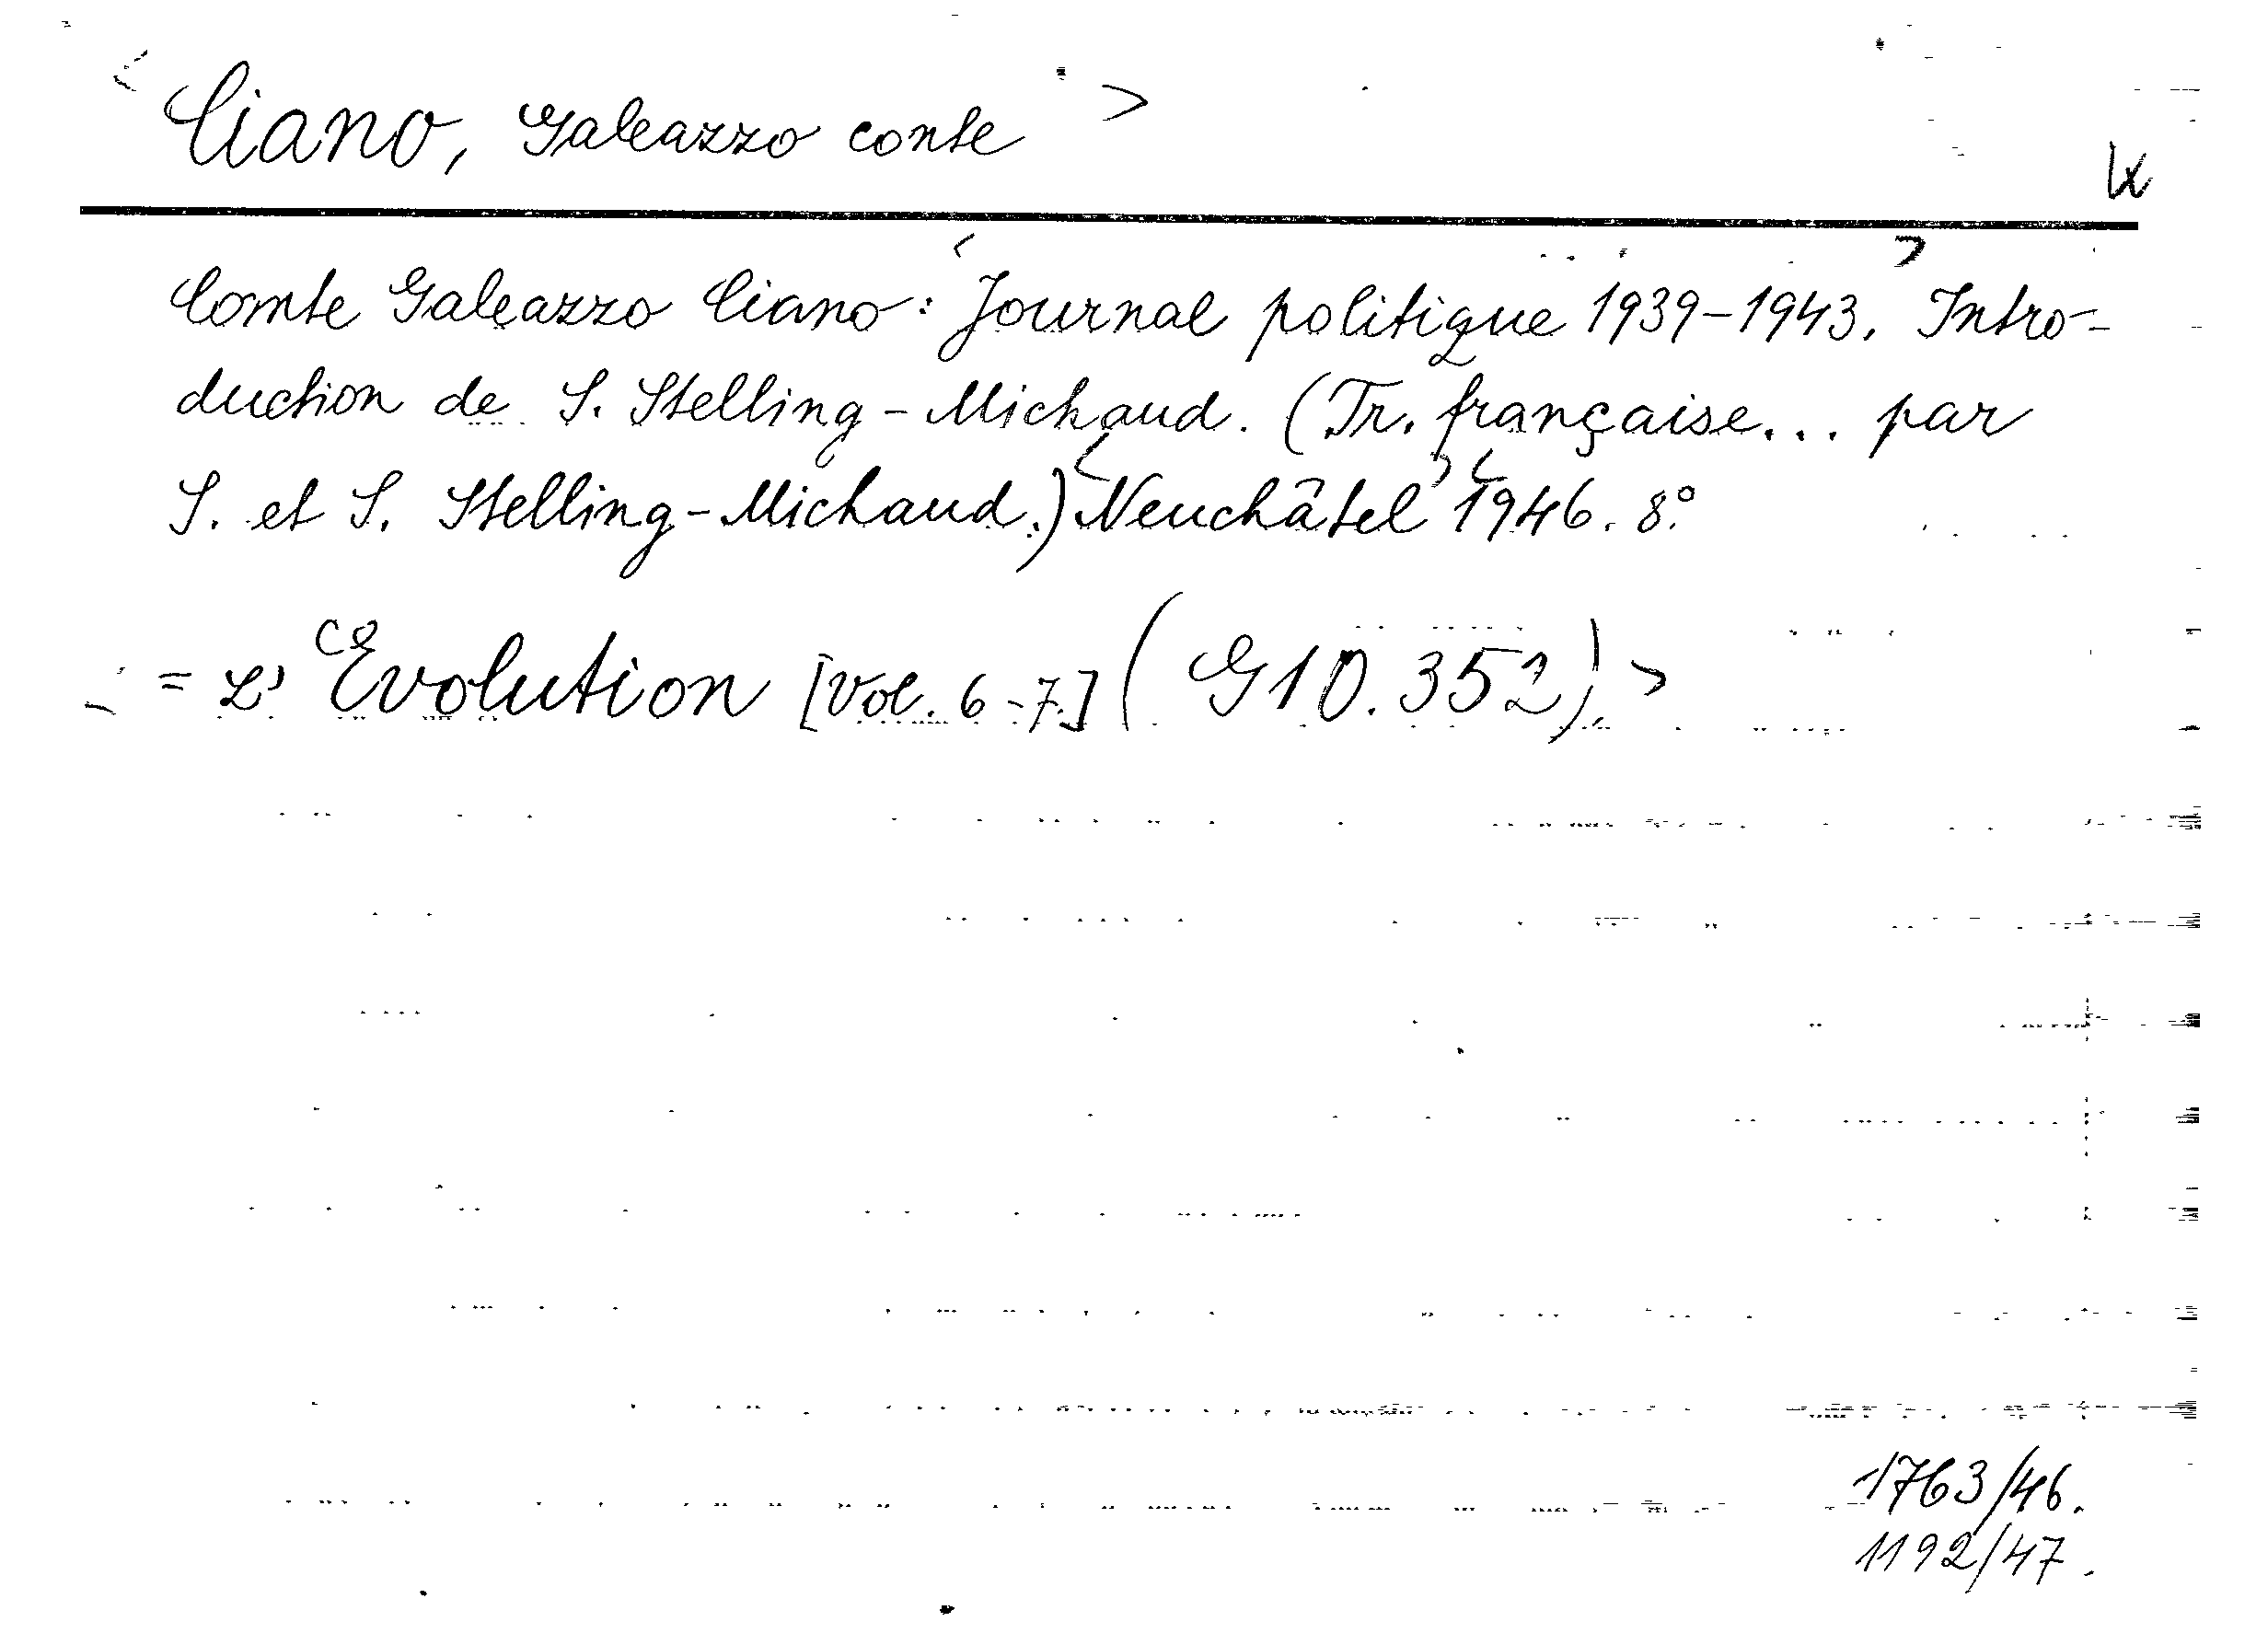 < Ciano, Galeazzo conte >
Comte Galeazzo Ciano: <Journal politique 1939-1943.> Intro-
duction de S. Stelling-Michaud. (Tr. française... par
S. et S. Stelling-Michaud.) <Neuchâtel> <1946. 8°
= L' Evolution [Vol. 6-7.] (G10.352).>
1763/46.
1192/47.